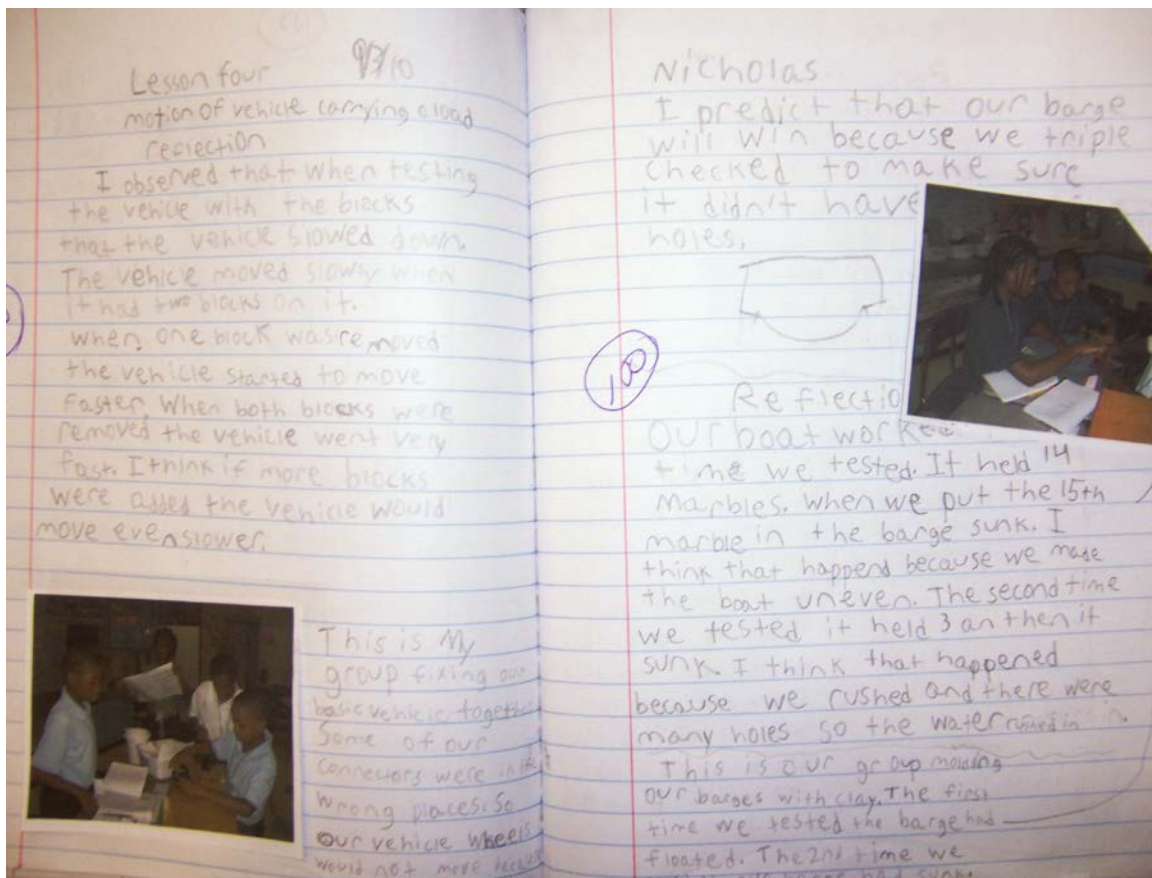 Lesson four
motion of vehicle carrying a load
reflection
I observed that when testing
the vehicle with the blocks
that the vehicle slowed down.
The vehicle moved slowly when
it had two blocks on it.
when one block was removed
the vehicle started to move
Faster. When both blocks were
removed the vehicle went very
fast. I think if more blocks
were added the vehicle would
move even slower.
This is My
group fixing our
basic vehicle together
Some of our
connectors were in the
wrong places. So
our vehicle wheels
would not move because
Nicholas
I predict that our barge
will win because we triple
checked to make sure
it didn't have
holes.
100
Reflectio
Our boat worked
time we tested. It held 14
marbles. When we put the 15th
marble in the barge sunk. I
think that happend because we made
the boat uneven. The second time
we tested it held 3 an then it
sunk. I think that happened
because we rushed and there were
many holes so the water rushed in
This is our group molding
our barges with clay. The first
time we tested the barge had
floated. The 2nd time we
barge had sunk.